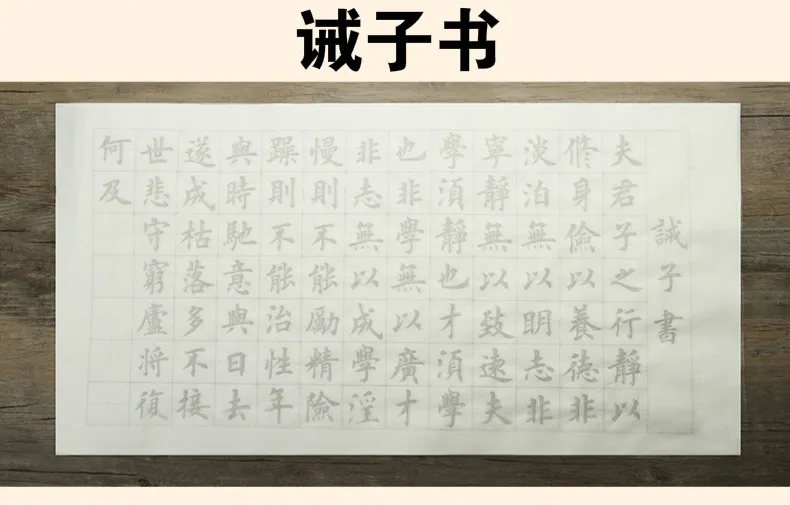 诫子书
誡子書
夫君子之行靜以
修身儉以養德非
淡泊無以明志非
寧靜無以致遠夫
學須靜也才須學
也非學無以廣才
非志無以成學淫
慢則不能勵精險
躁則不能治性年
與時馳意與日去
遂成枯落多不接
世悲守窮廬將復
何及